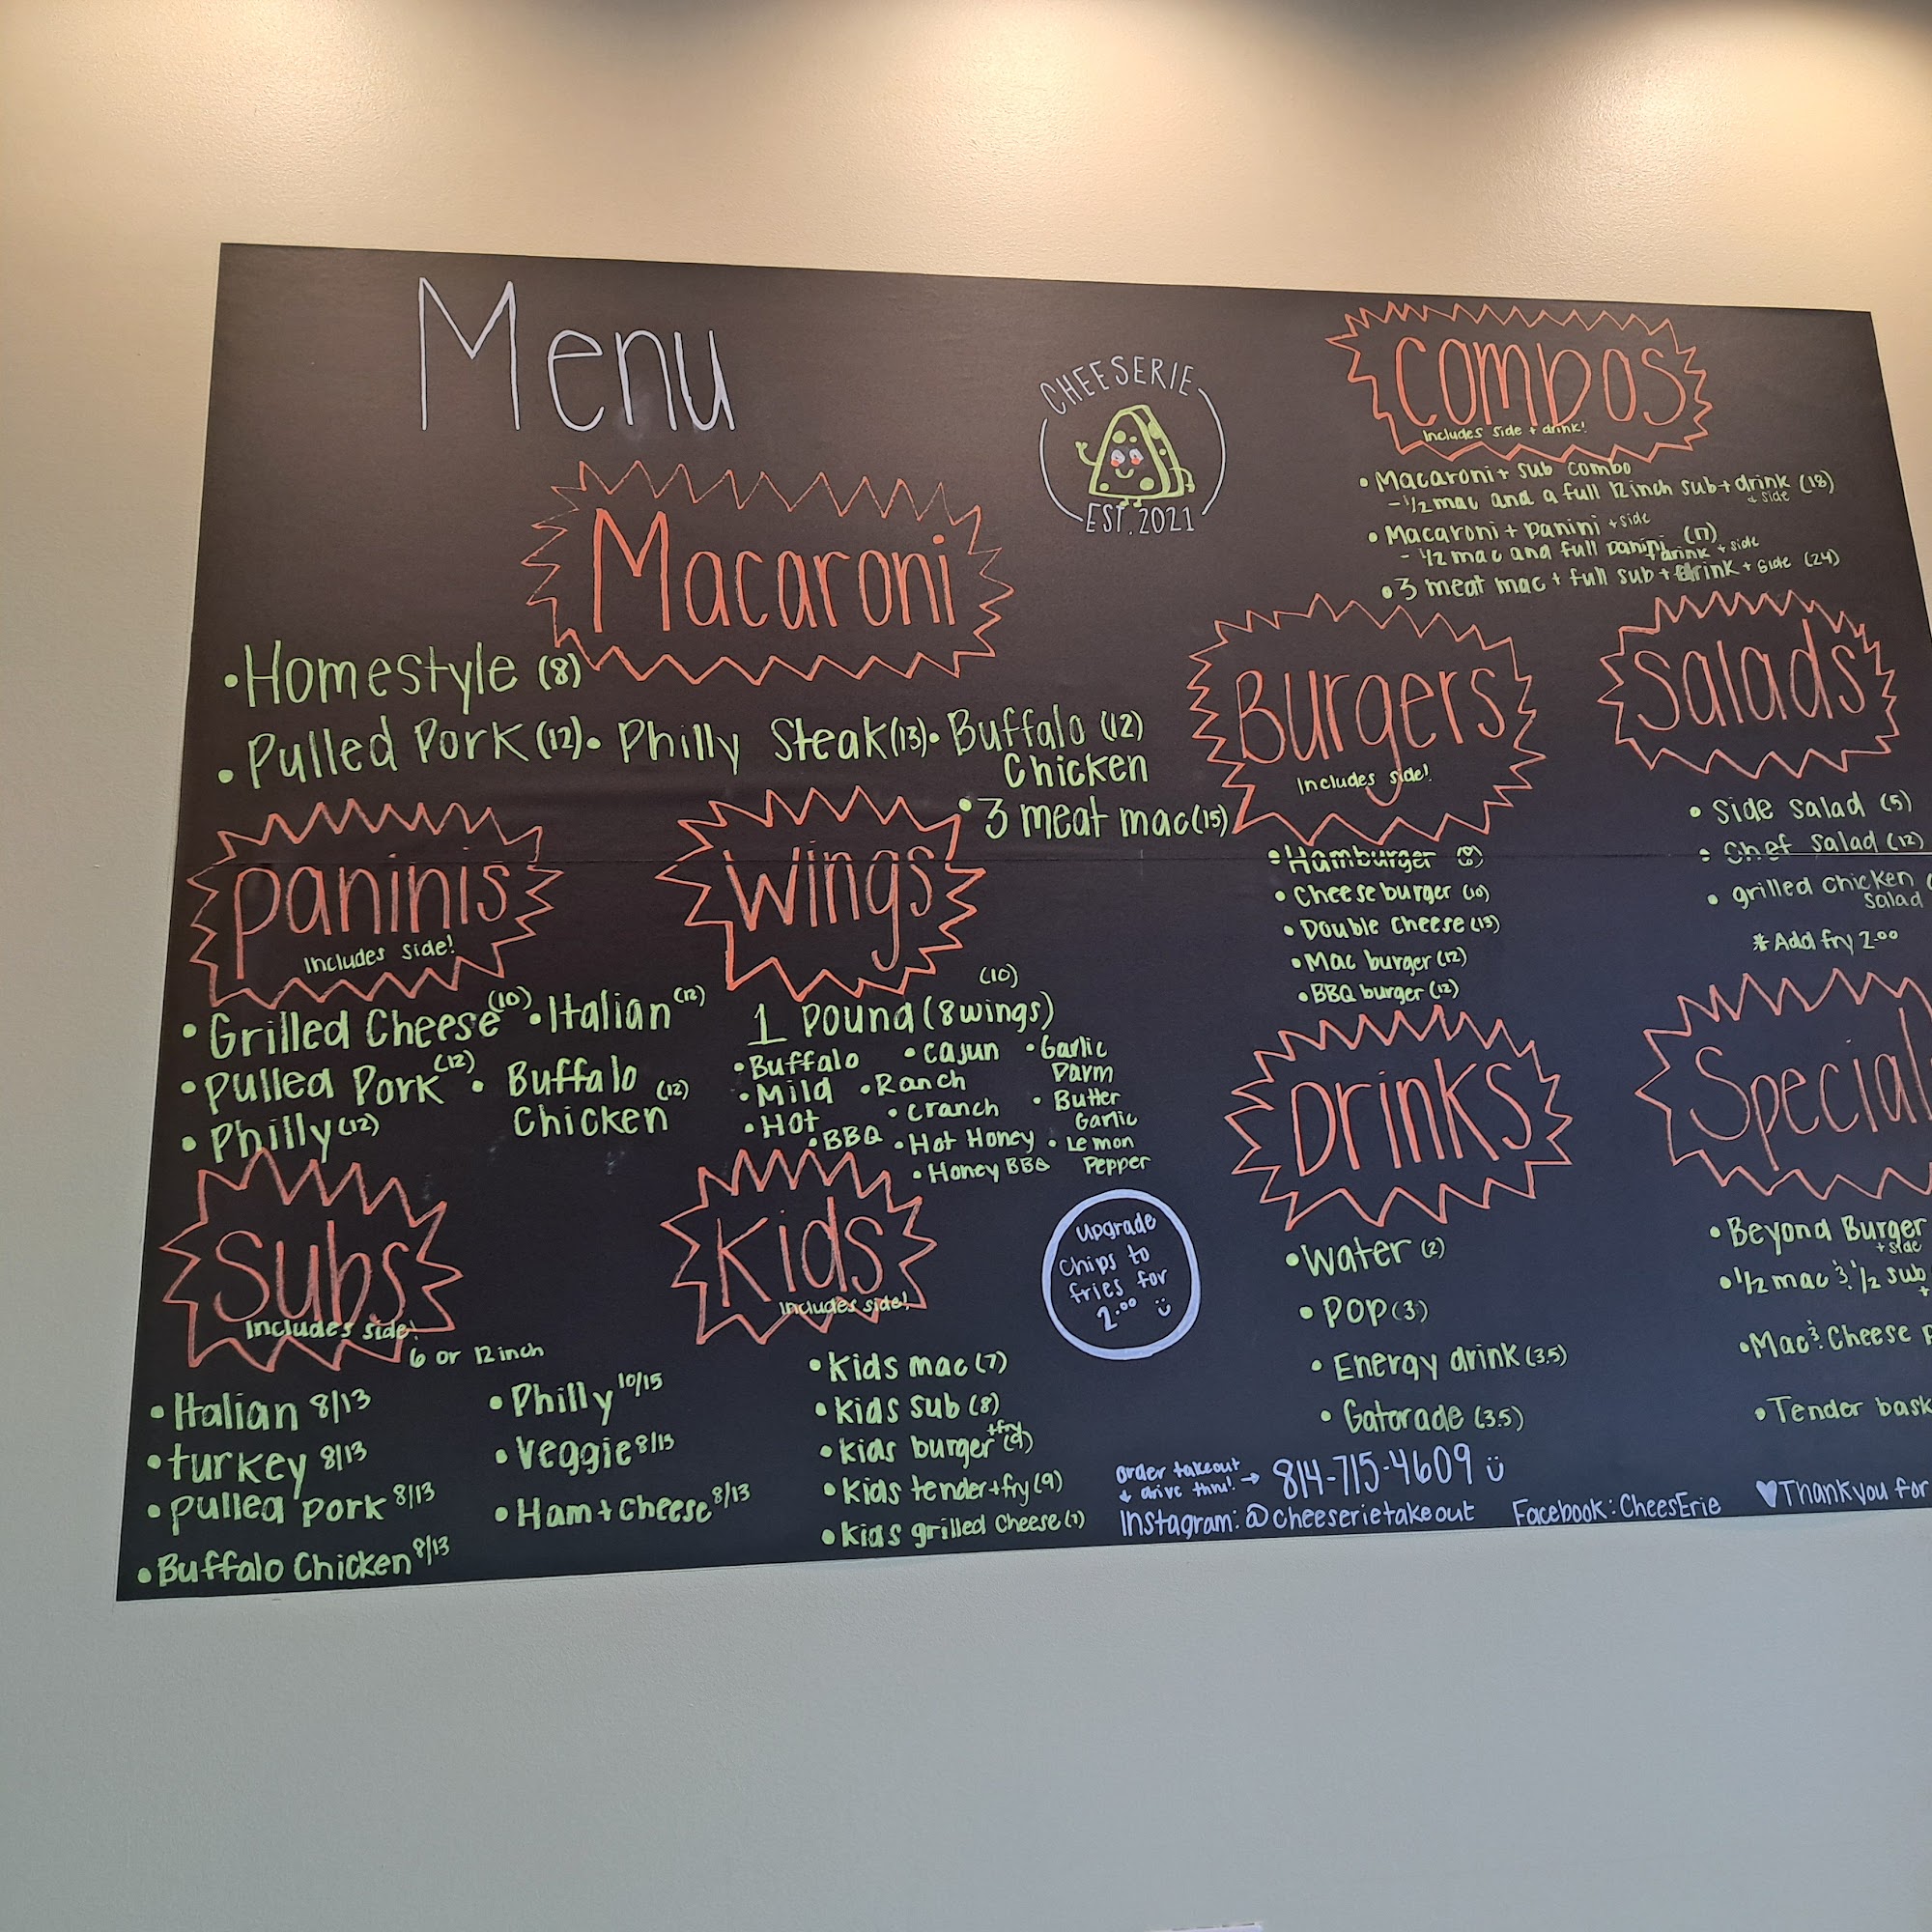 Menu
CHEESERIE
EST. 2021
Macaroni
•Homestyle (8)
•Pulled Pork (12)• Philly Steak (13)• Buffalo (12)
Chicken
•3 meat mac (15)
Paninis
Includes side!
•Grilled Cheese (10) •Italian (12)
•Pulled Pork (12) • Buffalo
Chicken (12)
•Philly (12)
Wings
(10)
1 Pound (8 wings)
•Buffalo •Cajun •Garlic
Parm
•Mild •Ranch
•Cranch •Butter
Garlic
•Hot
•BBQ •Hot Honey •Lemon
Pepper
•Honey BBQ
Subs
Includes side!
6 or 12 inch
•Italian 8/13
•turkey 8/13
•Pulled Pork 8/13
•Buffalo Chicken 8/13
•Philly 10/15
•Veggie 8/13
•Ham + Cheese 8/13
Kids
Includes side!
•kids mac (7)
•kids sub (8)
•kids burger +fry (9)
•kids tender + fry (9)
•kids grilled cheese (7)
Upgrade
Chips to
fries for
2.00
Combos
Includes side + drink!
•Macaroni + sub combo
-1/2 mac and a full 12 inch sub + drink (18)
+ side
•Macaroni + panini + side
-1/2 mac and full panini (17)
+ drink + side
•3 meat mac + full sub + drink + side (24)
Burgers
Includes side!
•Hamburger (8)
•Cheeseburger (10)
•Double Cheese (13)
•Mac burger (12)
•BBQ burger (12)
Salads
•Side Salad (5)
•Chef Salad (12)
•grilled chicken (
Salad
*Add fry 2.00
Drinks
•Water (2)
•Pop (3)
•Energy drink (3.5)
•Gatorade (3.5)
Special
•Beyond Burger
+side
•1/2 mac & 1/2 sub
+
•Mac & Cheese
•Tender bask
order takeout
+ drive thru! → 814-715-4609
Instagram: @cheeserietakeout Facebook: CheesErie
Thank you for